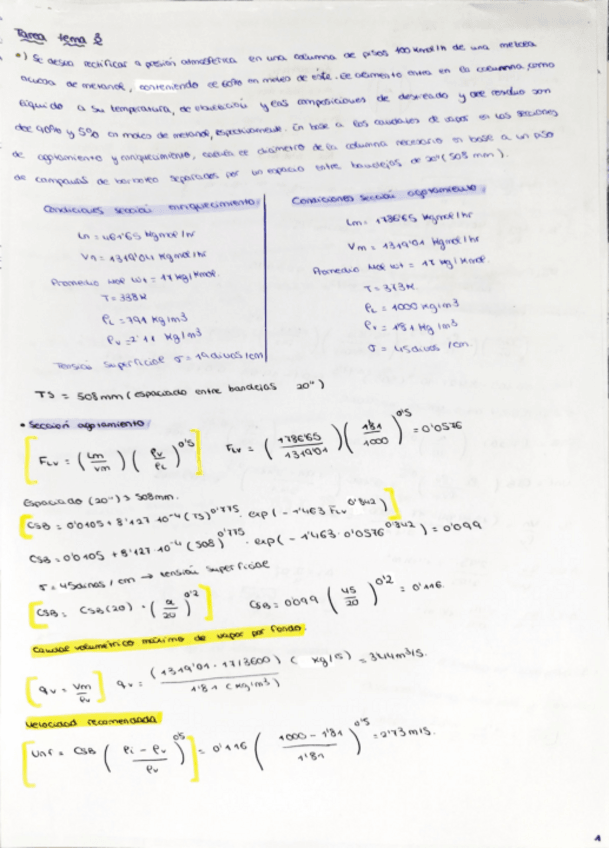 Tarea tema 8
•) Se desea rectificar a presión atmosférica en una columna de pisos 100 kmol/h de una mezcla
acuosa de metanol, conteniendo el 60% en moles de éste. El alimento entra en la columna como
líquido a su temperatura de ebullición y las composiciones de destilado y del residuo son
del 90% y 5% en moles de metanol, respectivamente. En base a los caudales de vapor en las secciones
de agotamiento y enriquecimiento, calcula el diámetro de la columna necesario en base a un piso
de campanas de barboteo separadas por un espacio entre bandejas de 20" (508 mm).
Condiciones sección enriquecimiento:
Vn = 1319'04 kgmol/hr
Promedio Mol wt = 17 kg/kmol.
T = 338K
ρL = 791 kg/m3
Tensión superficial σ = 19 dinas/cm
Condiciones sección agotamiento:
Lm = 1786'65 kgmol/hr
Vm = 1319'01 kgmol/hr
Promedio Mol wt = 17 kg/kmol
T = 373K
ρL = 1000 kg/m3
ρv = 1'81 kg/m3
σ = 45 dinas/cm.
TS = 508 mm (espaciado entre bandejas 20")
• Sección agotamiento:
[FLV = (Lm/Vm) (ρv/ρL)^0'5] FLV = (1786'65/1319'01) (1'81/1000)^0'5 = 0'0576
Espaciado (20") > 508mm.
[CSB = 0'0105 + 8'127·10^-4 (TS)^0'775 · exp(-1'463 FLV^0'842)]
CSB = 0'0105 + 8'127·10^-4 (508)^0'775 · exp(-1'463·0'0576^0'842) = 0'099
σ = 45 dinas/cm → tensión superficial
[CSB = CSB(20) · (σ/20)^0'2] CSB = 0'099 (45/20)^0'2 = 0'116
Caudal volumétrico máximo de vapor por fondo.
[qv = Vm/ρv] qv = (1319'01·17/3600) (kg/s) / 1'81 (kg/m3) = 3'44m3/s.
Velocidad recomendada
[Unf = CSB (ρl - ρv / ρv)^0'5] = 0'116 (1000 - 1'81 / 1'81)^0'5 = 2'73 m/s.
1